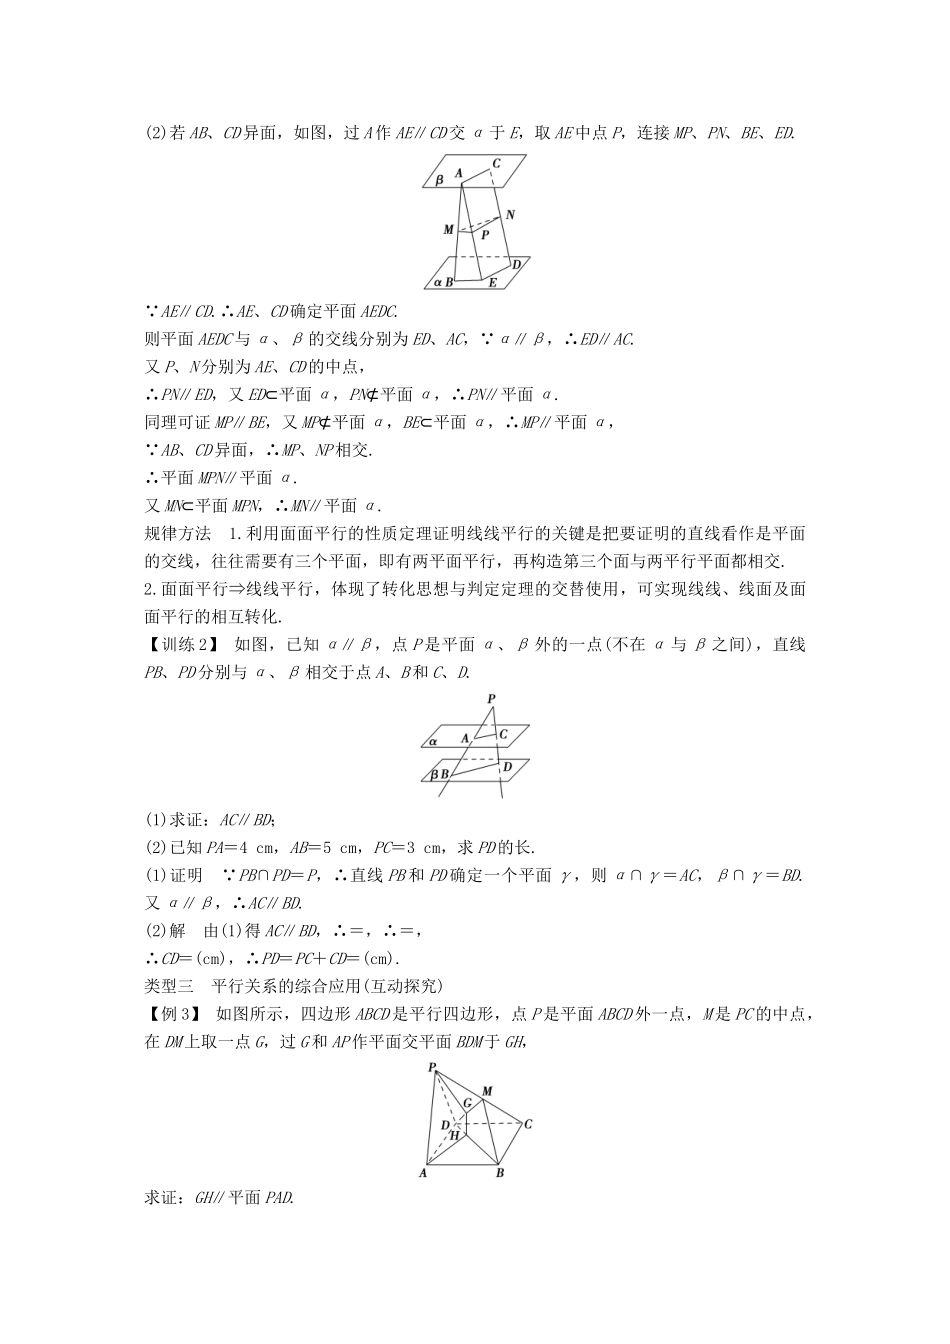 (2)若AB、CD异面，如图，过A作AE∥CD交α于E，取AE中点P，连接MP、PN、BE、ED.
C
A
β
N
M
P
D
α B
E
∵AE∥CD.∴AE、CD确定平面AEDC.
则平面AEDC与α、β的交线分别为ED、AC，∵α∥β，∴ED∥AC.
又P、N分别为AE、CD的中点，
∴PN∥ED，又ED⊂平面α，PN⊄平面α，∴PN∥平面α.
同理可证MP∥BE，又MP⊄平面α，BE⊂平面α，∴MP∥平面α，
∵AB、CD异面，∴MP、NP相交.
∴平面MPN∥平面α.
又MN⊂平面MPN，∴MN∥平面α.
规律方法　1.利用面面平行的性质定理证明线线平行的关键是把要证明的直线看作是平面
的交线，往往需要有三个平面，即有两平面平行，再构造第三个面与两平行平面都相交.
2.面面平行⇒线线平行，体现了转化思想与判定定理的交替使用，可实现线线、线面及面
面平行的相互转化.
【训练2】 如图，已知α∥β，点P是平面α、β外的一点(不在α与β之间)，直线
PB、PD分别与α、β相交于点A、B和C、D.
P
α
A
C
β B
D
(1)求证：AC∥BD；
(2)已知PA＝4 cm，AB＝5 cm，PC＝3 cm，求PD的长.
(1)证明　∵PB∩PD＝P，∴直线PB和PD确定一个平面γ，则α∩γ＝AC，β∩γ＝BD.
又α∥β，∴AC∥BD.
(2)解　由(1)得AC∥BD，∴＝，∴＝，
∴CD＝(cm)，∴PD＝PC＋CD＝(cm).
类型三　平行关系的综合应用(互动探究)
【例3】 如图所示，四边形ABCD是平行四边形，点P是平面ABCD外一点，M是PC的中点，
在DM上取一点G，过G和AP作平面交平面BDM于GH，
P
M
G
D
C
H
A
B
求证：GH∥平面PAD.